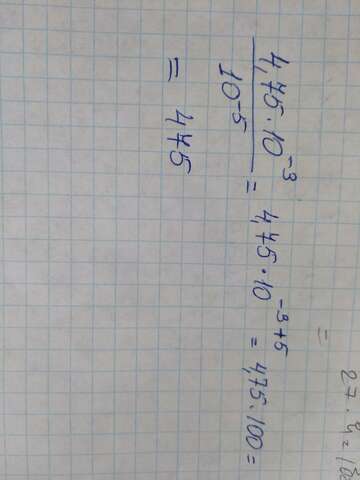 4,75·10⁻³/10⁻⁵ = 4,75·10⁻³⁺⁵ = 4,75·100 =
= 475
=
27·4=